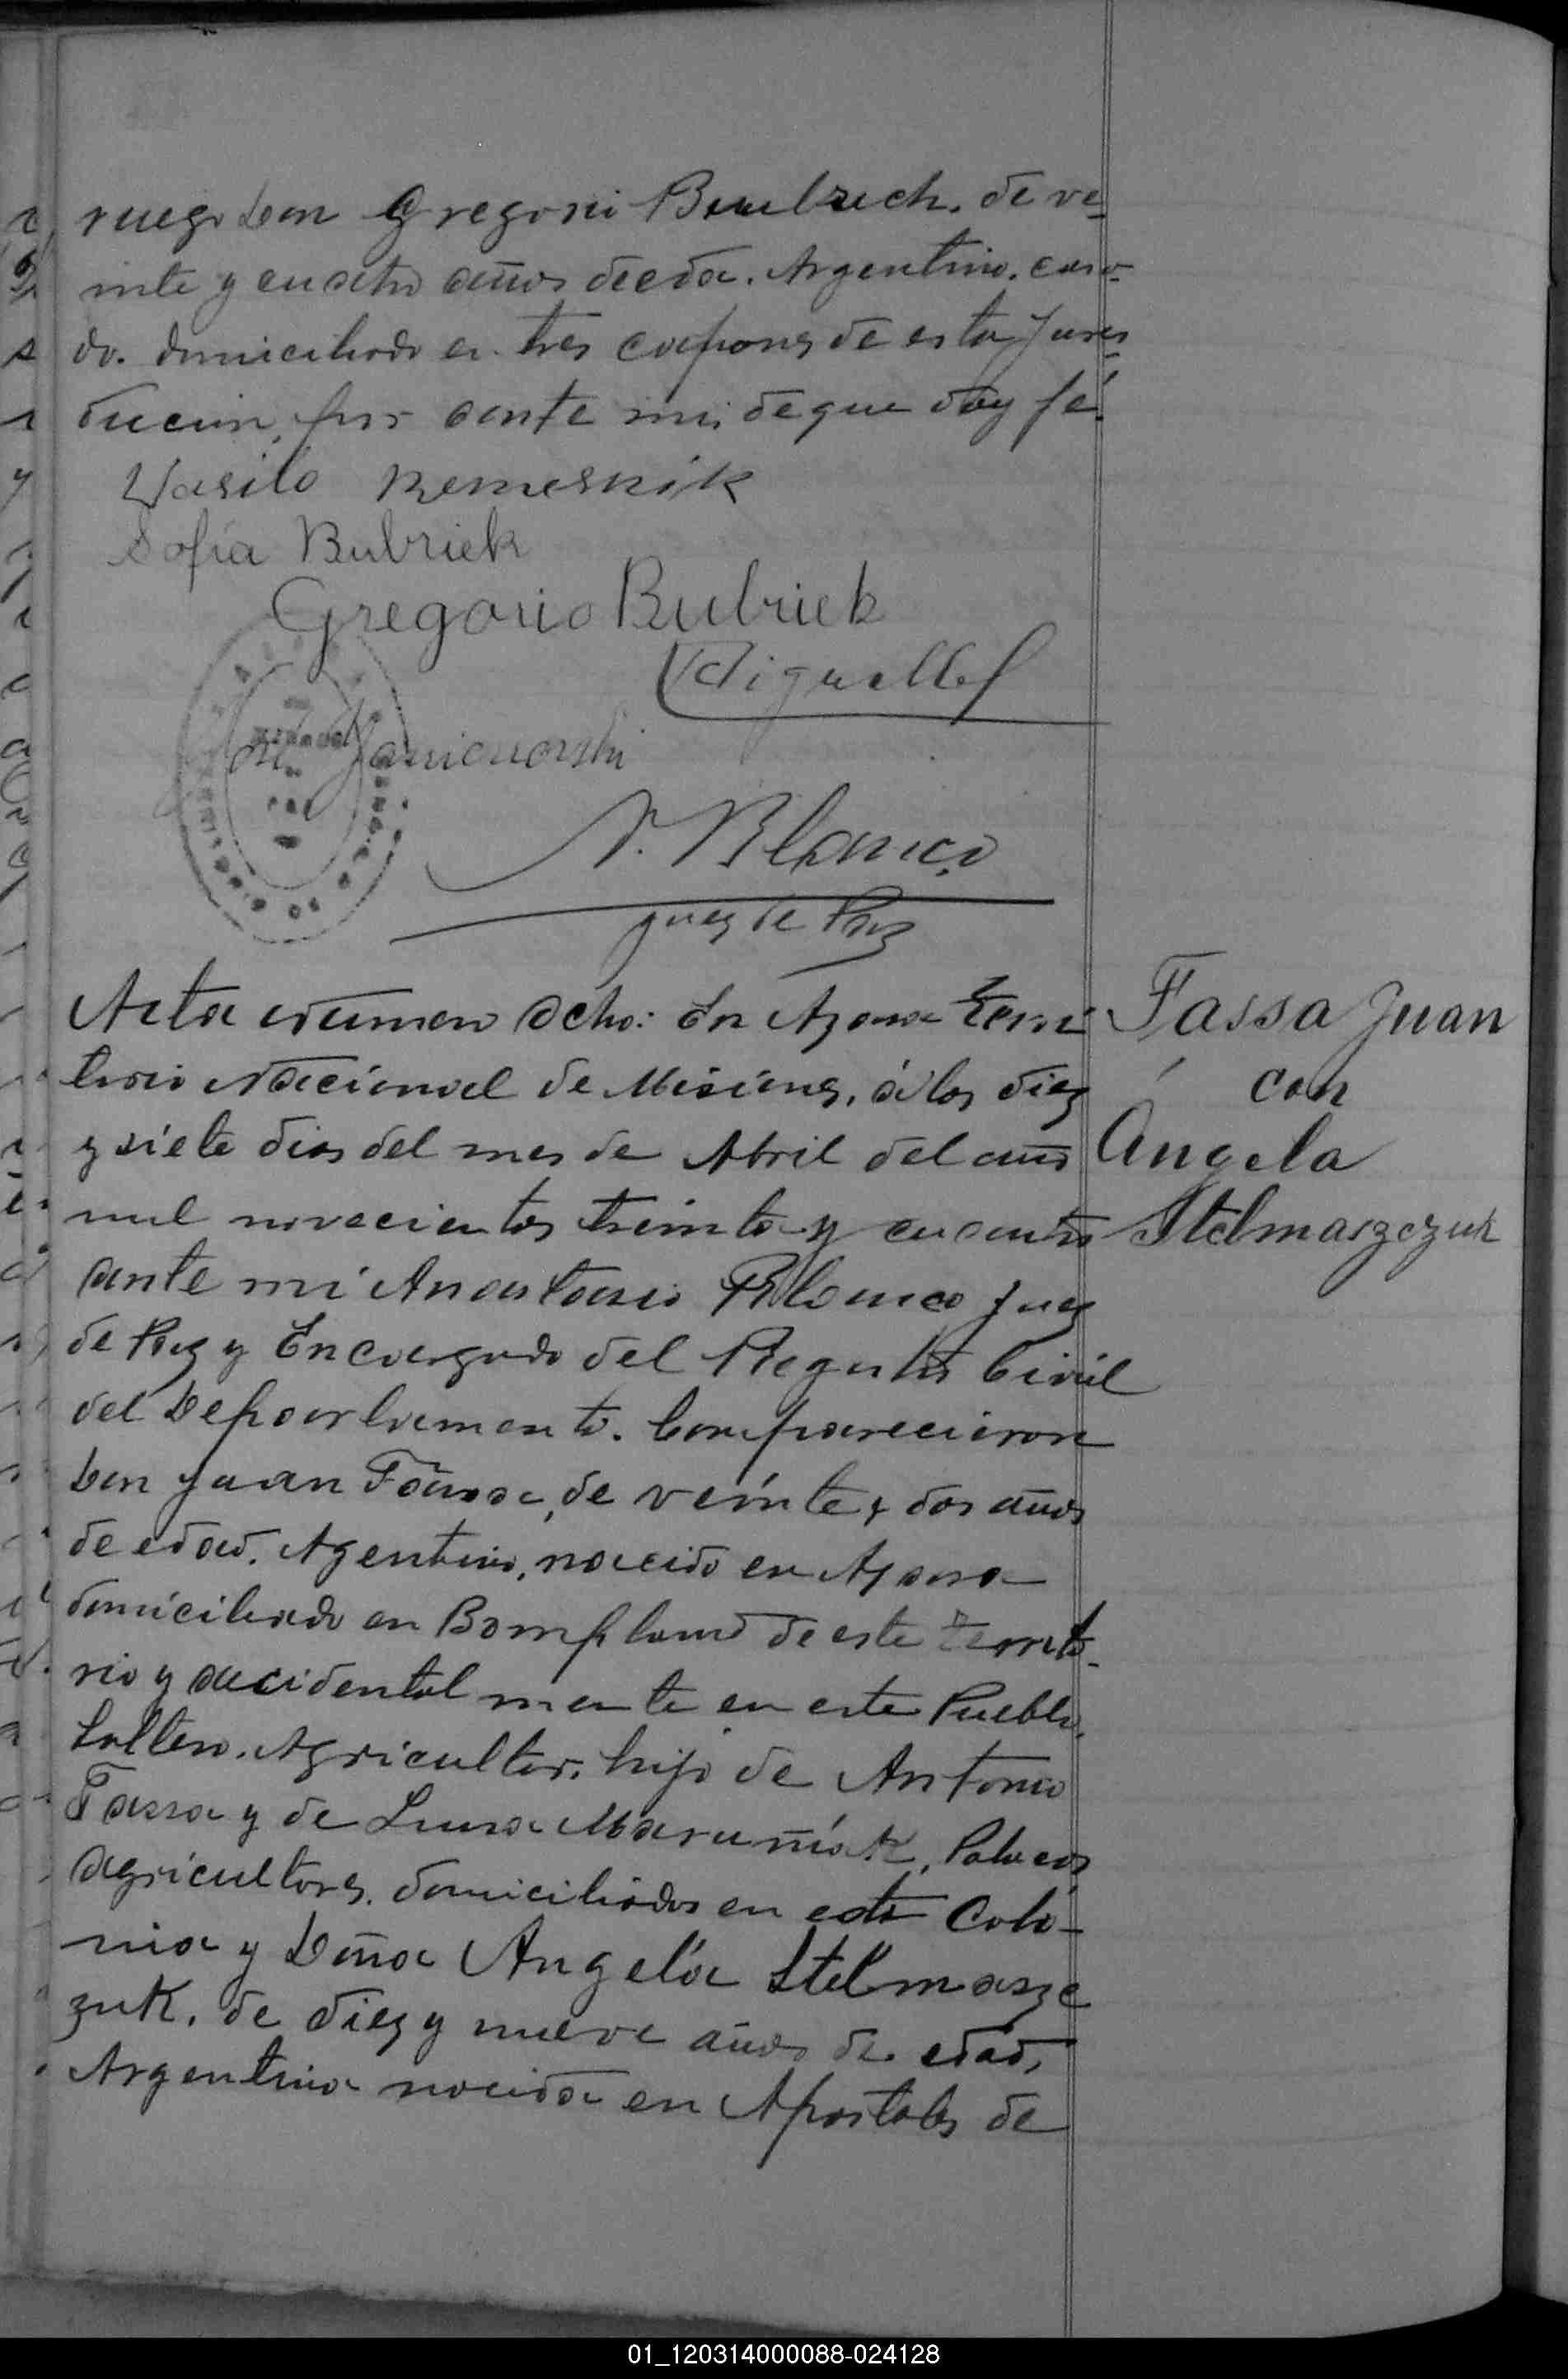 ruego Don Gregorio Bubrech. de ve-
inte y cuatro años de eda. Argentino. casa-
do. domiciliado en tres capones de esta Juris-
ducion, por ante mi, de que doy fé.
Vasilo Remesnik
Sofia Bubriek
Gregorio Bubriek
Blanco
Juez de Paz
Acta número Ocho: En Azara Terri
torio Nacional de Misiones, á los diez
y siete dias del mes de Abril del año
mil novecientos treinta y cuatro
ante mi Anastasio Blanco Juez
de Paz y Encargado del Registro Civil
del Departamento. Comparecieron
Don Juan Fassa, de veinte y dos años
de edad. Agentino, nacido en Azara
domiciliado en Bompland de este territo-
rio y accidentalmente en este Pueblo.
Soltero. Agricultor. hijo de Antonio
Fassa y de Luisa Maruñiak, Polacos
agricultores. domiciliados en esta Colo-
nia y Doña Angela Stelmasze
zuk. de diez y nueve años de edad,
Argentina nacida en Apostoles de
Fassa Juan
con
Angela
Stelmaszczuk
01_120314000088-024128